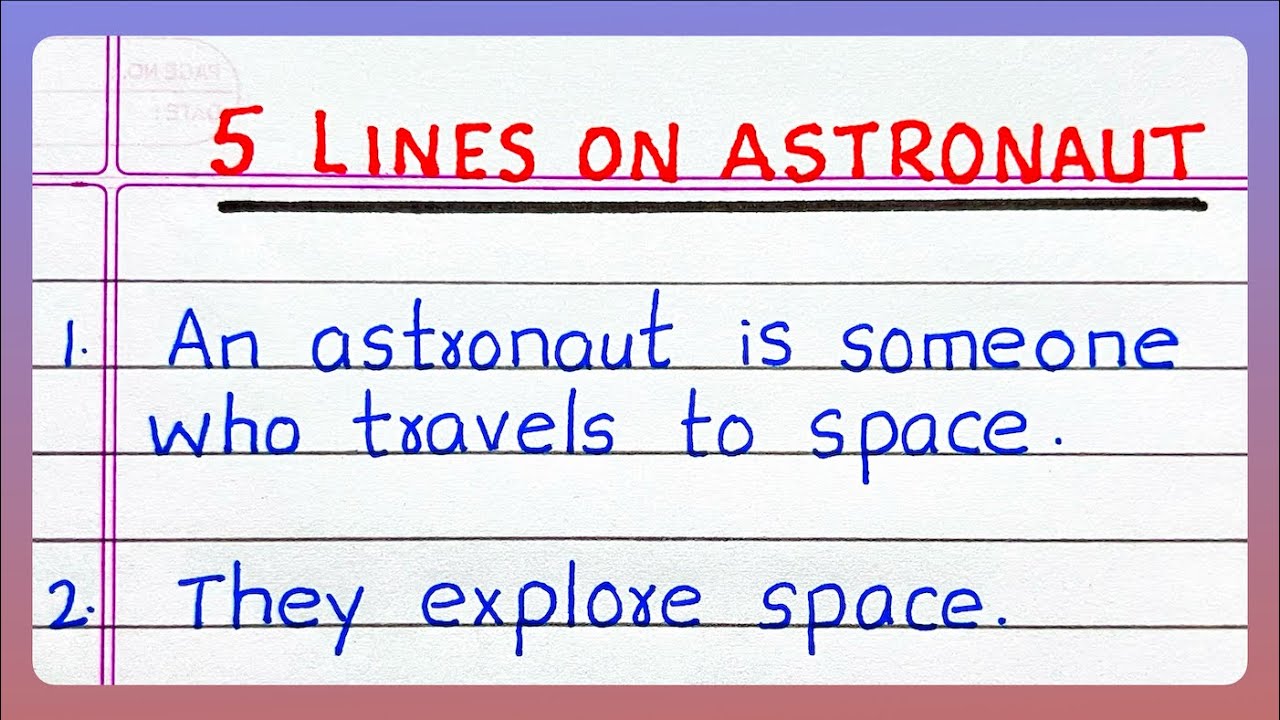 PAGE NO.
DATE:
5 LINES ON ASTRONAUT
1. An astronaut is someone
who travels to space.
2. They explore space.